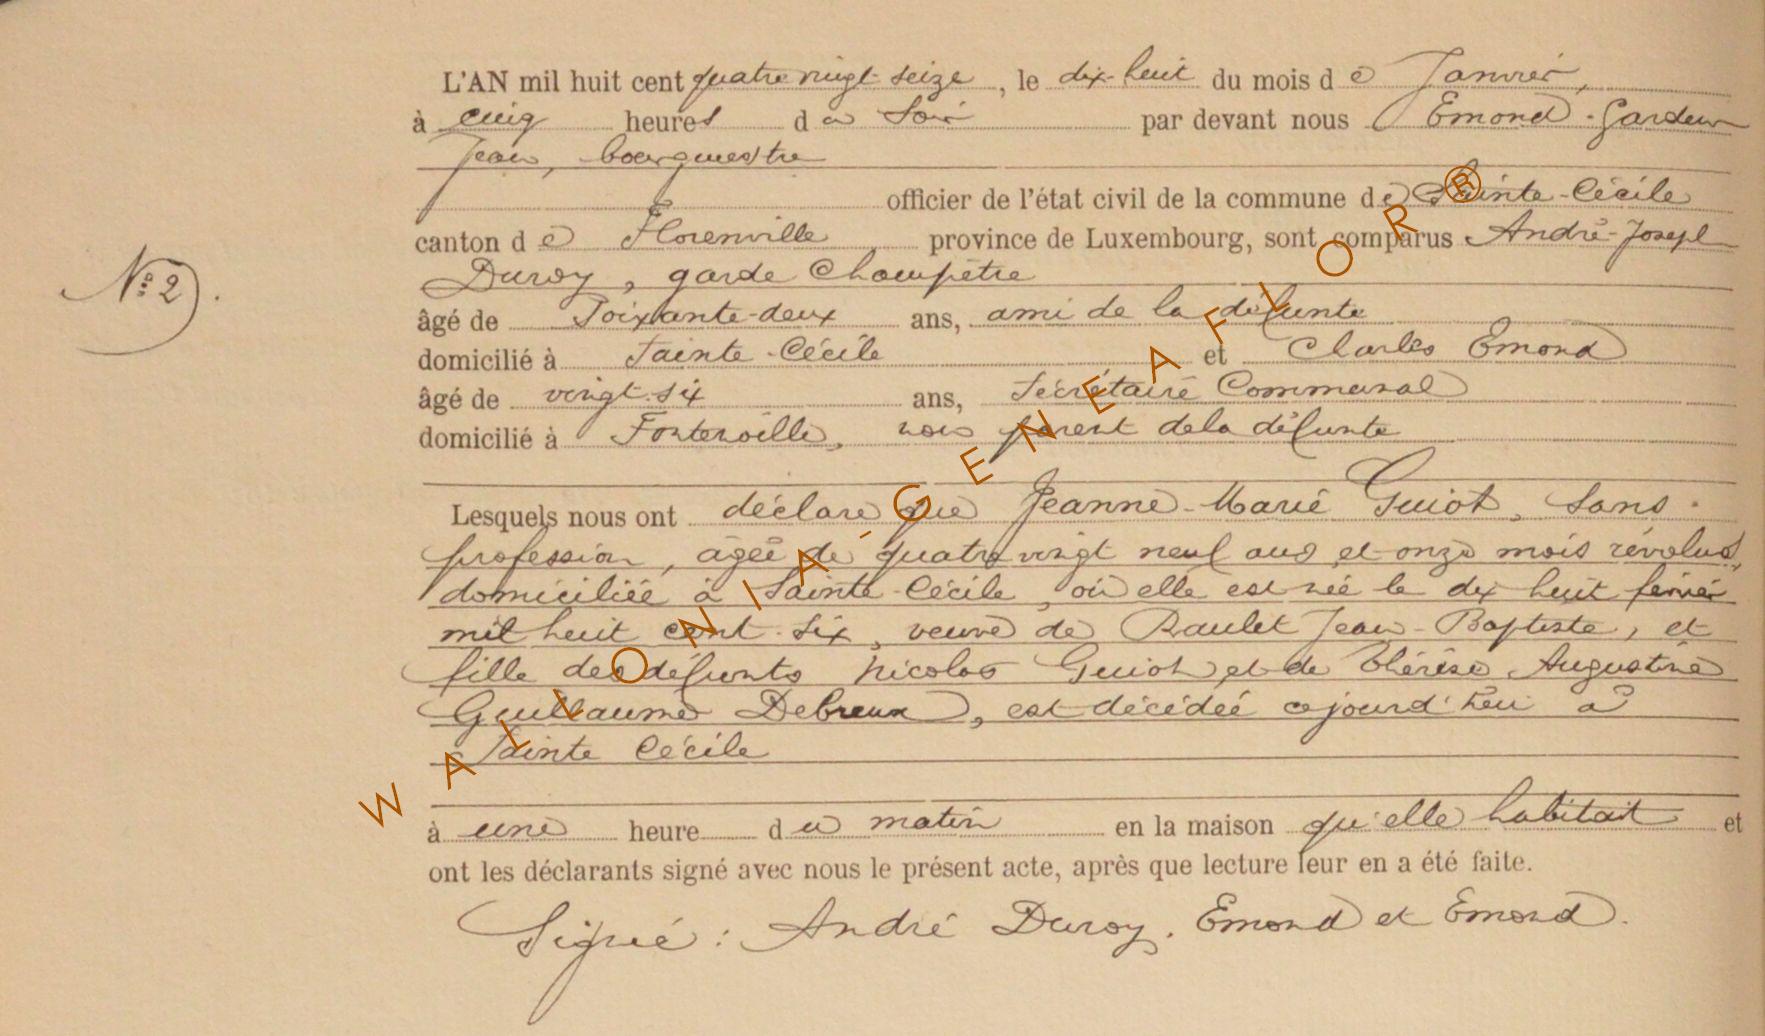 L'AN mil huit cent quatre vingt-seize, le dix-huit du mois de Janvier,
à cinq heures du Soir par devant nous Emond-Gardeur
Jean, bourgmestre
officier de l'état civil de la commune de Sainte-Cécile
canton de Florenville province de Luxembourg, sont comparus André-Joseph
Duroy, garde Champêtre
N° 2.
âgé de Soixante-deux ans, ami de la défunte
domicilié à Sainte-Cécile et Charles Emond
âgé de vingt-six ans, Secrétaire Communal
domicilié à Fontenoille, non parent de la défunte
Lesquels nous ont déclaré que Jeanne-Marie Guiot, Sans
profession, âgée de quatre vingt neuf ans et onze mois révolus,
domiciliée à Sainte-Cécile, où elle est née le dix huit février
mil huit cent-six, veuve de Raulet Jean-Baptiste, et
fille des défunts Nicolas Guiot et de Thérèse Augustine
Guillaume Debreux, est décédée ajourd'hui à
Sainte Cécile
à une heure du matin en la maison qu'elle habitait et
ont les déclarants signé avec nous le présent acte, après que lecture leur en a été faite.
Signé : André Duroy, Emond et Emond.
WALLONIA-GENEAFLOR®